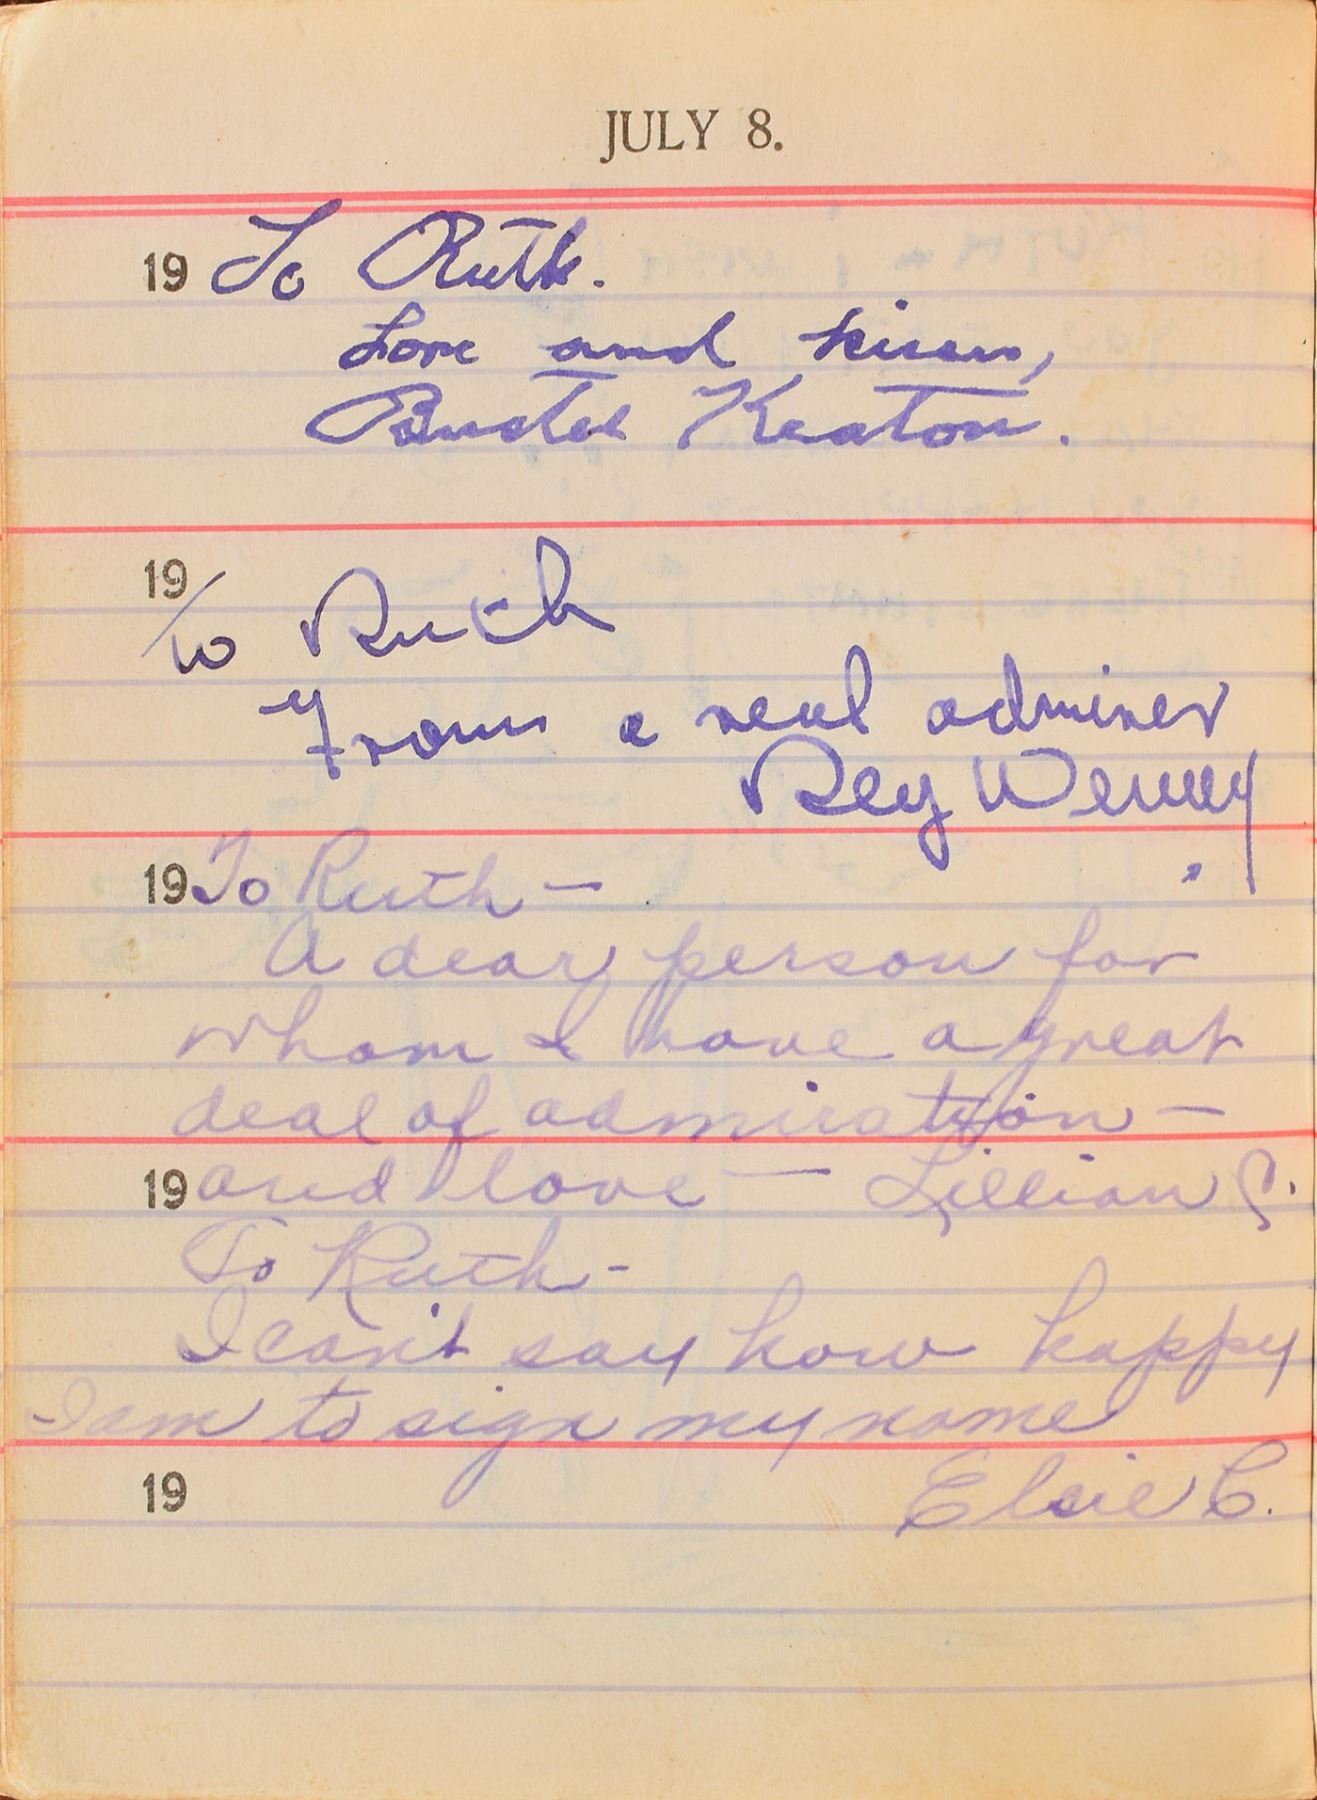 JULY 8.
19 To Ruth.
Love and kisses,
Buster Keaton.
19
To Ruth
From a real admirer
19 To Ruth —
A dear person for
whom I have a great
deal of admiration —
19 and love — Lillian
To Ruth -
I can't say how happy
I am to sign my name
19 Elsie C.